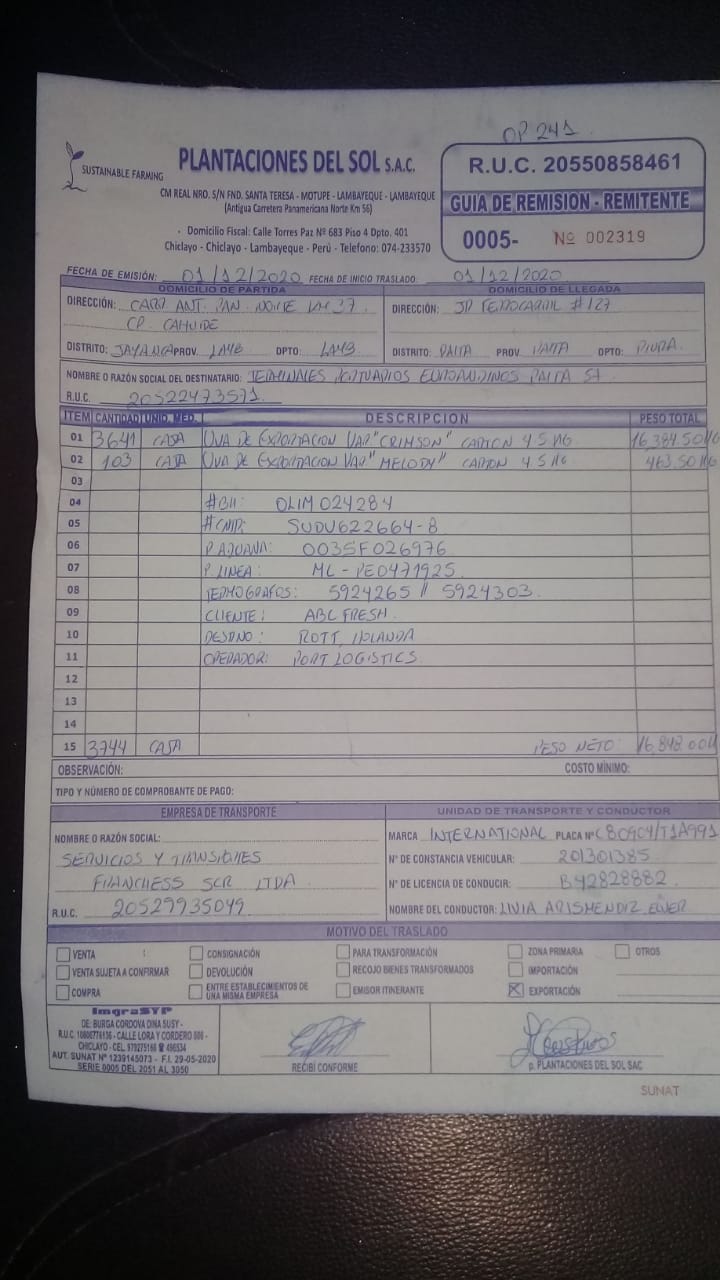 OP 241
SUSTAINABLE FARMING
PLANTACIONES DEL SOL S.A.C.
CM REAL NRO. S/N FND. SANTA TERESA - MOTUPE - LAMBAYEQUE - LAMBAYEQUE
(Antigua Carretera Panamericana Norte Km 56)
Domicilio Fiscal: Calle Torres Paz Nº 683 Piso 4 Dpto. 401
Chiclayo - Chiclayo - Lambayeque - Perú - Telefono: 074-233570
R.U.C. 20550858461
GUIA DE REMISION - REMITENTE
0005- Nº 002319
FECHA DE EMISIÓN: 01/12/2020 FECHA DE INICIO TRASLADO: 01/12/2020
DOMICILIO DE PARTIDA
DIRECCIÓN: CARR ANT. PAN. NORTE KM 37
CP. CAHUIDE
DISTRITO: JAYANCA PROV. LAMB DPTO: LAMB.
DOMICILIO DE LLEGADA
DIRECCIÓN: JR FERROCARRIL # 127
DISTRITO: PAITA PROV PAITA DPTO: PIURA.
NOMBRE O RAZÓN SOCIAL DEL DESTINATARIO: TERMINALES PORTUARIOS EUROANDINOS PAITA SA
R.U.C. 20522473571
ITEM CANTIDAD UNID. MED. DESCRIPCION PESO TOTAL
01 3641 CAJA UVA DE EXPORTACION VAR "CRIMSON" CARTON 4.5 KG 16,384.50 KG
02 103 CAJA UVA DE EXPORTACION VAR "MELODY" CARTON 4.5 KG 463.50 KG
03
04 #BK: OLIM024284
05 #CNTR: SUDU622664-8
06 P. ADUANA: 003SF026976
07 P. LINEA: ML-PE0471925
08 TERMOGRAFOS: 5924265 // 5924303.
09 CLIENTE: ABC FRESH.
10 DESTINO: ROTT, HOLANDA
11 OPERADOR: PORT LOGISTICS
12
13
14
15 3744 CAJA PESO NETO: 16,848.00 KG
OBSERVACIÓN: COSTO MÍNIMO:
TIPO Y NÚMERO DE COMPROBANTE DE PAGO:
EMPRESA DE TRANSPORTE
NOMBRE O RAZÓN SOCIAL:
SERVICIOS Y TRANSPORTES
FRANCHESS SCR LTDA
R.U.C. 20529935049
UNIDAD DE TRANSPORTE Y CONDUCTOR
MARCA INTERNATIONAL PLACA Nº C80904/T1A991
Nº DE CONSTANCIA VEHICULAR: 201301385
Nº DE LICENCIA DE CONDUCIR: B42828882
NOMBRE DEL CONDUCTOR: LIVIA ARISMENDIZ
MOTIVO DEL TRASLADO
VENTA CONSIGNACIÓN PARA TRANSFORMACIÓN ZONA PRIMARIA OTROS
VENTA SUJETA A CONFIRMAR DEVOLUCIÓN RECOJO BIENES TRANSFORMADOS IMPORTACIÓN
COMPRA ENTRE ESTABLECIMIENTOS DE UNA MISMA EMPRESA EMISOR ITINERANTE EXPORTACIÓN
ImgraSYP
DE: BURGA CORDOVA DINA SUSY -
CALLE LORA Y CORDERO
CHICLAYO - CEL.
AUT. SUNAT Nº 1239145073 - F.I. 29-05-2020
SERIE 0005 DEL 2051 AL 3050
RECIBÍ CONFORME
p. PLANTACIONES DEL SOL SAC
SUNAT